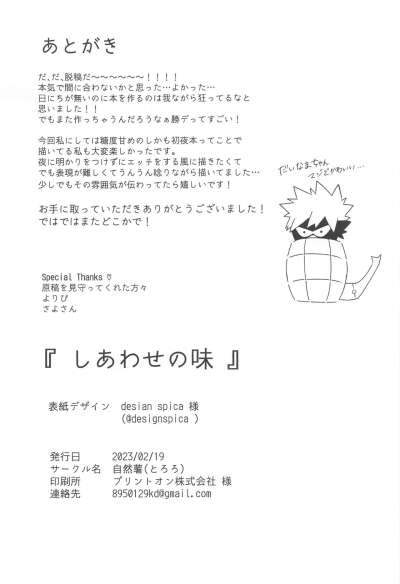 あとがき
だ、だ、脱稿だ〜〜〜〜〜〜！！！！
本気で間に合わないかと思った…よかった…
日にちが無いのに本を作るのは我ながら狂ってるなと
思いました！！
でもまた作っちゃうんだろうなぁ勝デってすごい！
今回私にしては糖度甘めのしかも初夜本ってことで
描いてる私も大変楽しかったです。
夜に明かりをつけずにエッチをする風に描きたくて
でも表現が難しくてうんうん唸りながら描いてました…
少しでもその雰囲気が伝わってたら嬉しいです！
お手に取っていただきありがとうございました！
ではではまたどこかで！
だいなまちゃん
マジでかわいい…
Special Thanks ♡
原稿を見守ってくれた方々
よりぴ
さよさん
『 しあわせの味 』
表紙デザイン desian spica 様
(@designspica )
発行日 2023/02/19
サークル名 自然薯(とろろ)
印刷所 プリントオン株式会社 様
連絡先 8950129kd@gmail.com